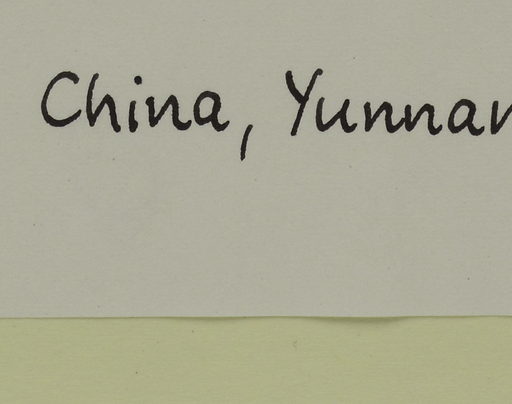 China, Yunnan